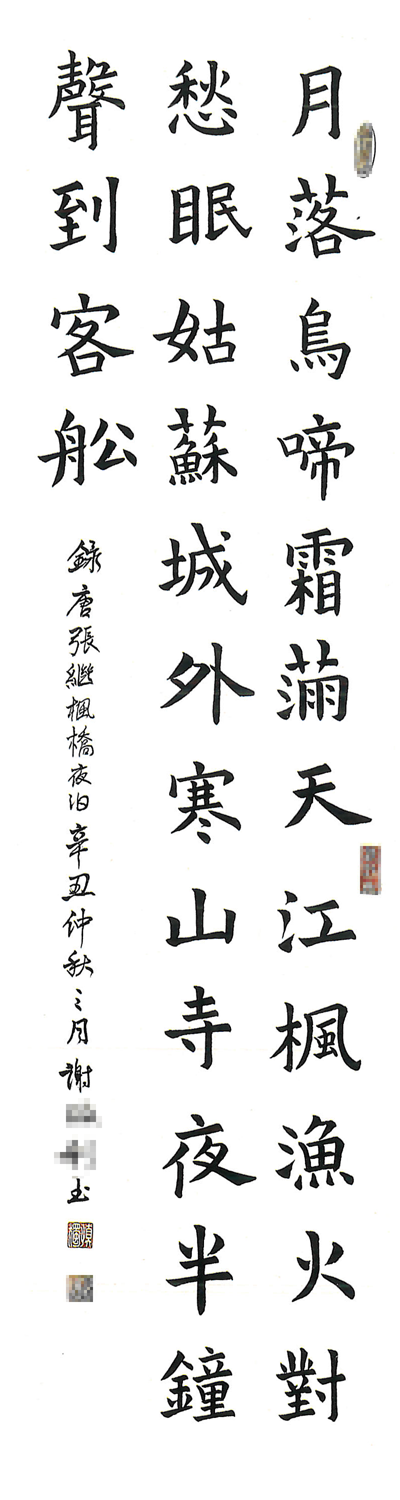 月落烏啼霜滿天江楓漁火對
愁眠姑蘇城外寒山寺夜半鐘
聲到客舩
錄唐張繼楓橋夜泊辛丑仲秋之月謝